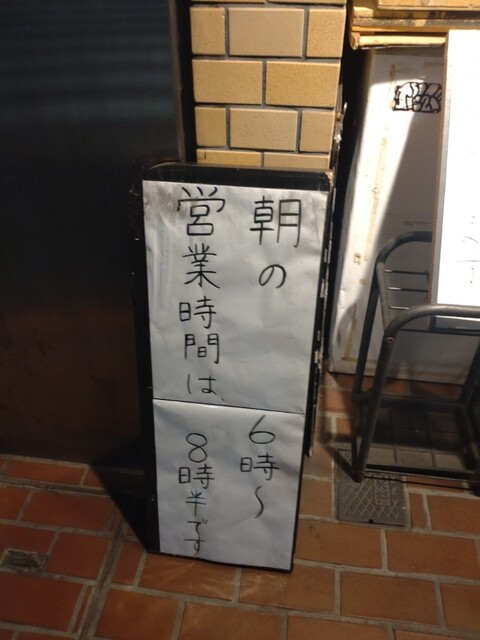 朝の
営業時間は、
6時〜
8時半です